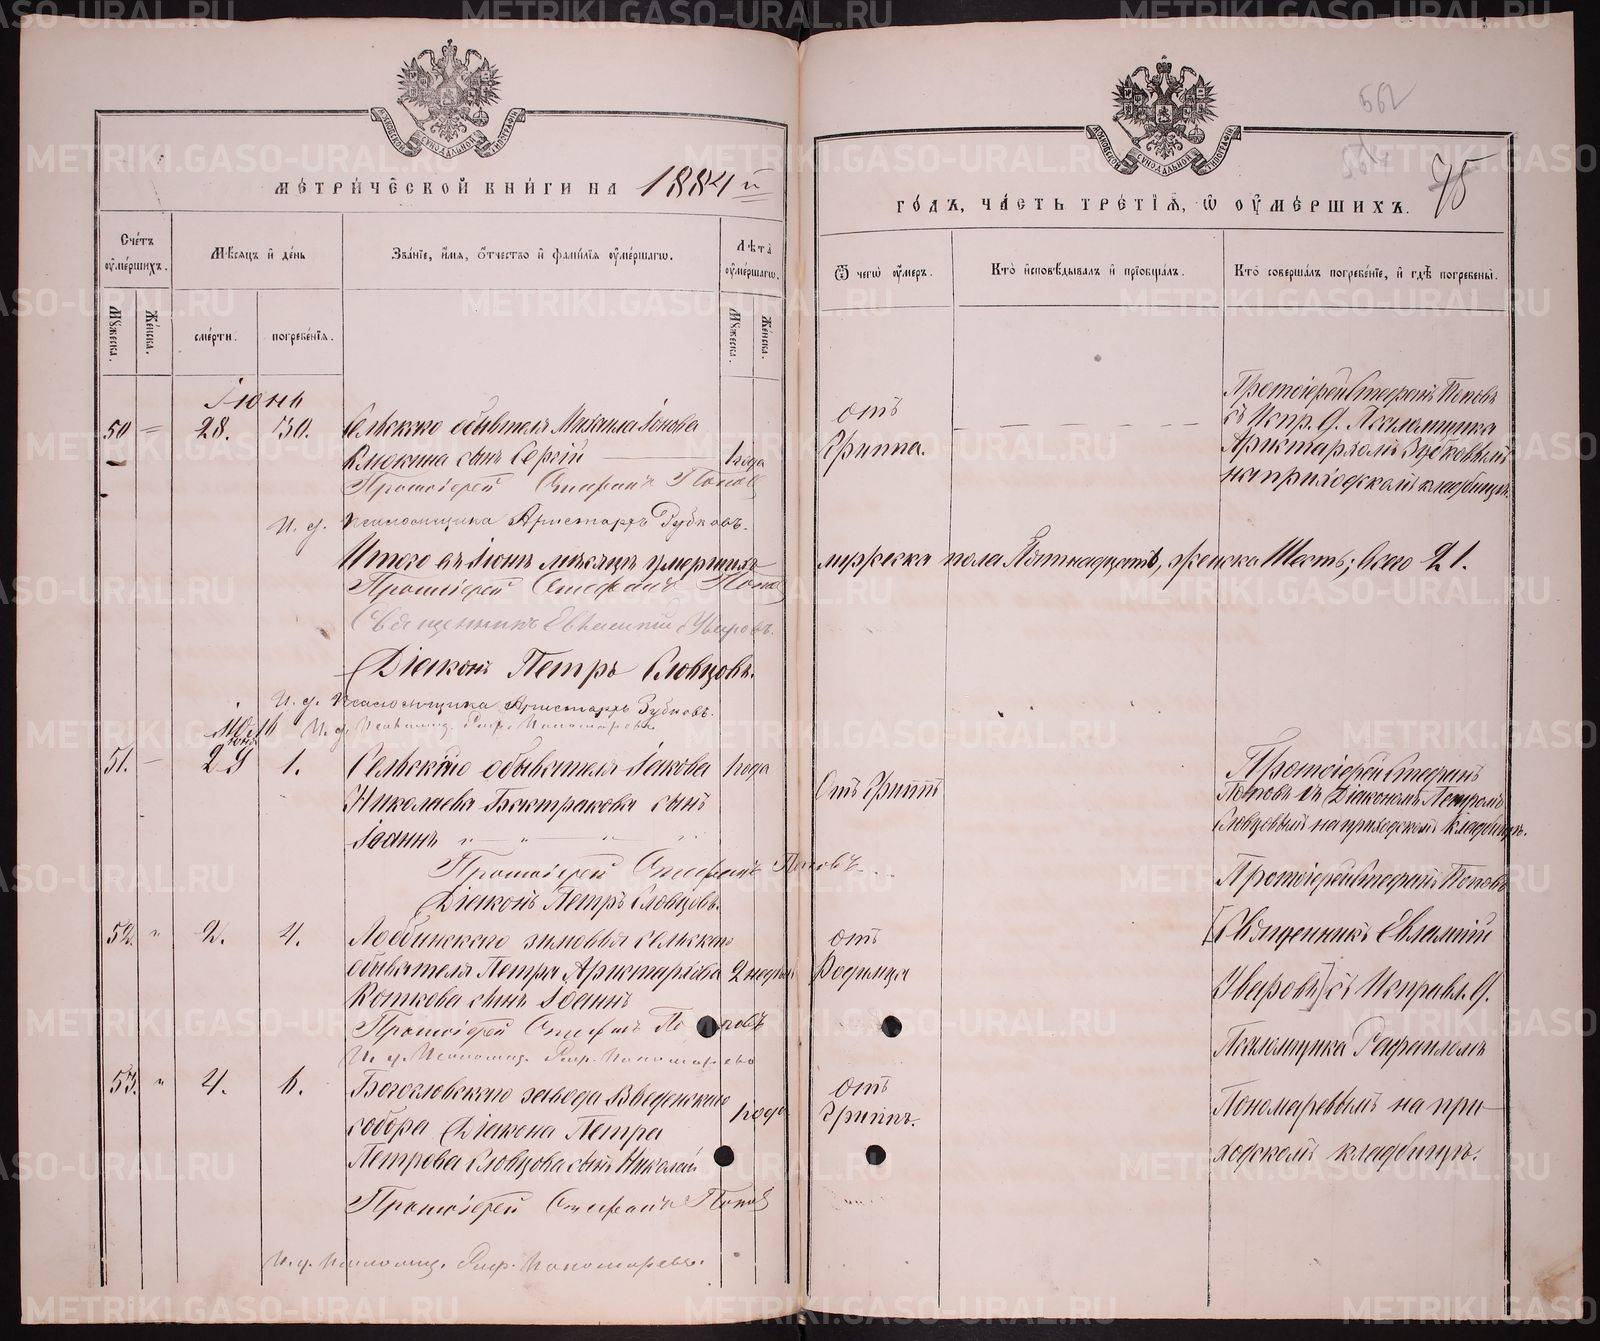 МЕТРИЧЕСКОЙ КНИГИ НА 1884 й
ГОДЪ, ЧАСТЬ ТРЕТІЯ, Ѽ ОУМЕРШИХЪ.
562
75
Счетъ оумершихъ.
Мѣсяцъ и день
Званіе, имя, отчество и фамилія оумершагѡ.
Лѣта оумершагѡ.
Ѿ чегѡ оумеръ.
Кто исповѣдывалъ и пріобщалъ.
Кто совершалъ погребеніе, и гдѣ погребены.
Мужеска.
Женска.
смерти.
погребенія.
Мужеска.
Женска.
Іюнь
50 28. 30. Сельскаго обывателя Михаила Іонова
сынъ Сергій 1 года
отъ
Гриппа.
Протоіерей Стефанъ Поповъ
съ Испр. д. Псаломщика
Аристархомъ Зубковымъ
на приходскомъ кладбищѣ.
Протоіерей Стефанъ Поповъ
И. д. Псаломщика Аристархъ Зубковъ.
Итого въ Іюнѣ мѣсяцѣ умершихъ мужеска пола Пятнадцать, женска Шесть; Всего 21.
Протоіерей Стефанъ Поповъ
Священникъ Евлампій Уваровъ.
Діаконъ Петръ Словцовъ.
И. д. Псаломщика Аристархъ Зубковъ.
И. д. Псаломщ. Раф. Пономаревъ
Іюль
Іюня
51. 29 1. Сельскаго обывателя Іакова 1 года
Николаева сынъ
Іоаннъ
Отъ Гриппъ
Протоіерей Стефанъ
Поповъ съ Діакономъ Петромъ
Словцовымъ на приходскомъ кладбищѣ.
Протоіерей Стефанъ Поповъ
Діаконъ Петръ Словцовъ.
52. 2. 4. зимовья сельскаго
обывателя Петра Аристархова 2 недѣли
Коткова сынъ Іоаннъ
отъ
Родимца
Протоіерей Стефанъ Поповъ
И. д. Псаломщ. Раф. Пономаревъ
53. 4. 6. Богословскаго завода Введенскаго
собора Діакона Петра 1 года
Петрова Словцова сынъ Николай
отъ
Гриппъ.
Протоіерей Стефанъ Поповъ
[Священникъ Евлампій
Уваровъ] съ Исправл. д.
Псаломщика Рафаиломъ
Пономаревымъ на при-
ходскомъ кладбищѣ.
Протоіерей Стефанъ Поповъ
И. д. Псаломщ. Раф. Пономаревъ.
METRIKI.GASO-URAL.RU